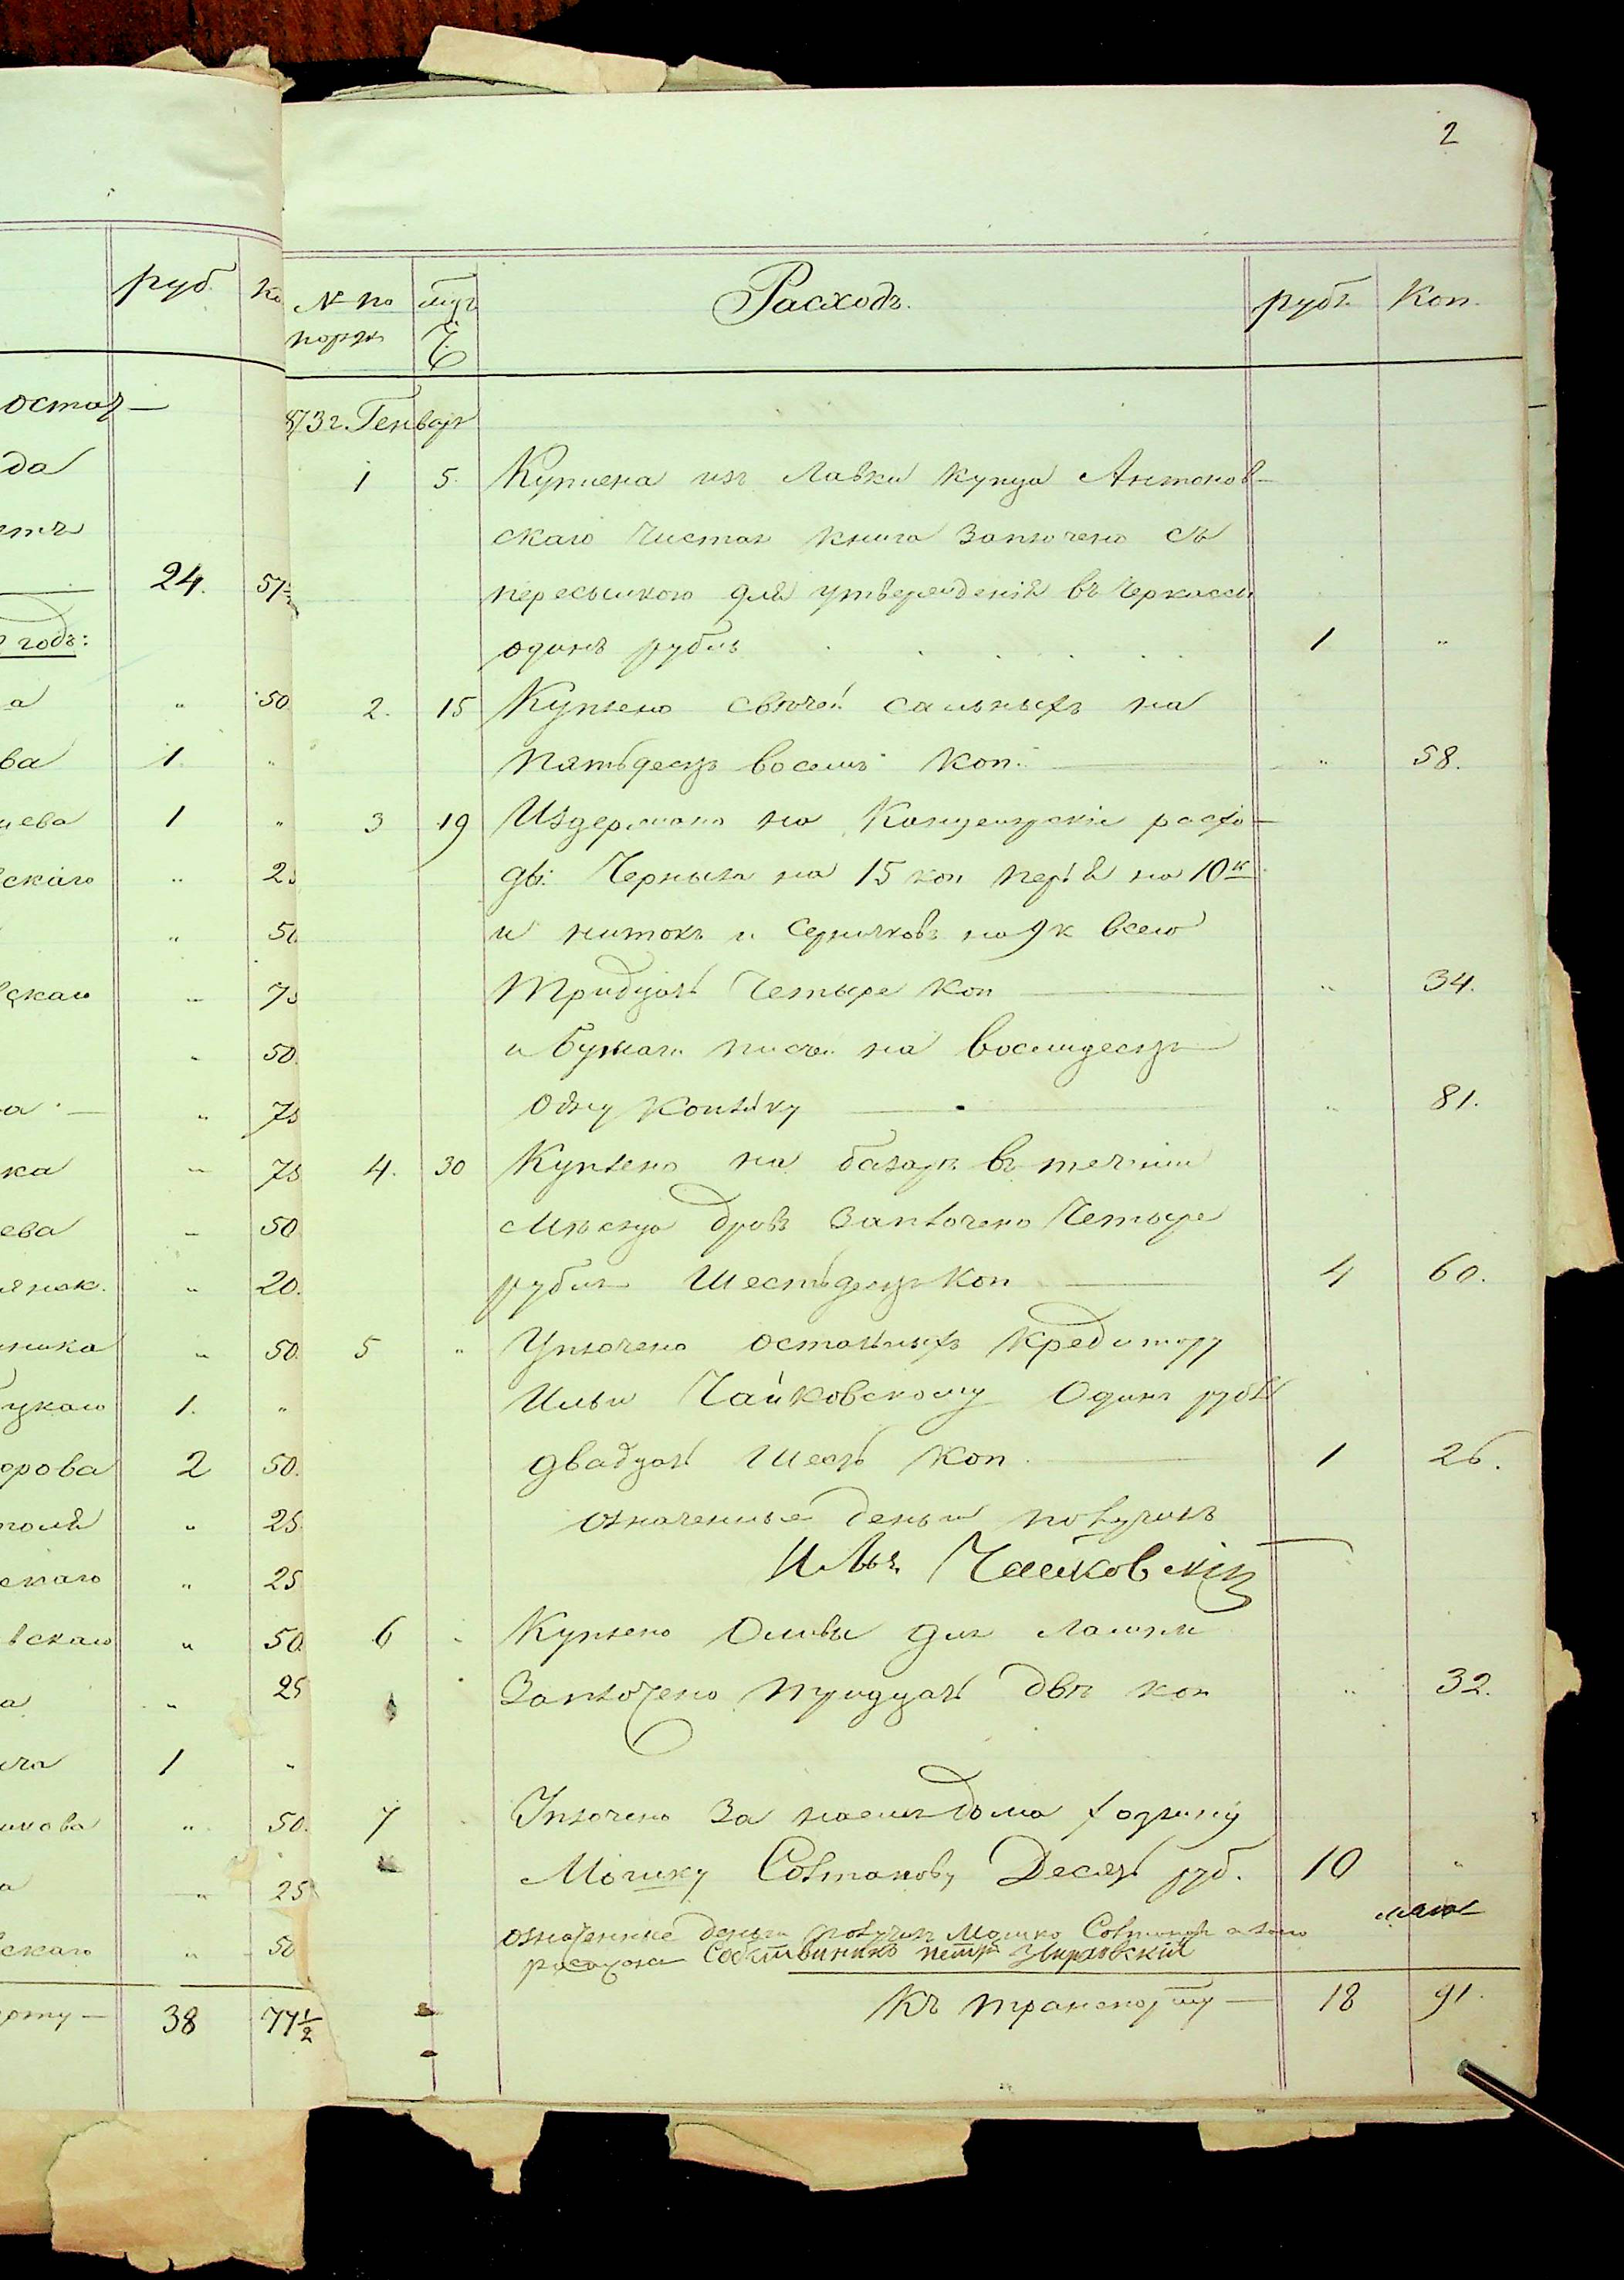 2
руб. ко
остат—
да
24. 57½
годъ:
а " 50
ва 1 "
чева 1 "
скаго " 25
" 50
вскаго " 75
" 50.
а — " 75
ка " 75
ева " 50
янск. " 20.
ника " 50.
цкаго 1. "
ерова 2 50.
поля " 25.
скаго " 25
вскаго " 50.
а " 25
ича 1 "
икова " 50.
а " 25
скаго " 50
рту — 38 77½
№ по порядк. мцъ Ч. Расходъ. рубл. Коп.
873 г. Генваря
1 5. Куплена изъ Лавки купца Антонов-
скаго Чистая книга Заплочено съ
пересылкою для утвержденія въ Черкассы
одинъ рубль . . . . . . 1 "
2. 15 Куплено свѣчей сальныхъ на
пятьдесятъ восемь коп. — " 58.
3 19 Издержано на Канцелярскіе расхо-
ды: Чернила на 15 коп перья на 10 к
и нитокъ и Серничковъ на 9 к всего
тридцать Четыре коп — " 34.
и бумаги писчей на восемдесятъ
одну копѣйку — " 81.
4. 30 Куплено на базарѣ въ теченіи
мѣсяца дровъ Заплочено Четыре
рубля Шестьдесятъ Коп — 4 60.
5 " Уплочено остальныхъ Кредитору
Ильи Чайковскому Одинъ рубль
двадцать шесть коп. — 1 26.
означенные деньги получилъ
Илья Чайковскій
6 " Куплено Оливы для лампы
Заплочено тридцать двѣ коп " 32.
7 Уплочено За наемъ дома хозяину
Мошку Совтанову Десять руб. 10 "
означенные деньги получилъ Мошко
росписался Собственникъ петръ
Къ транспорту — 18 91.